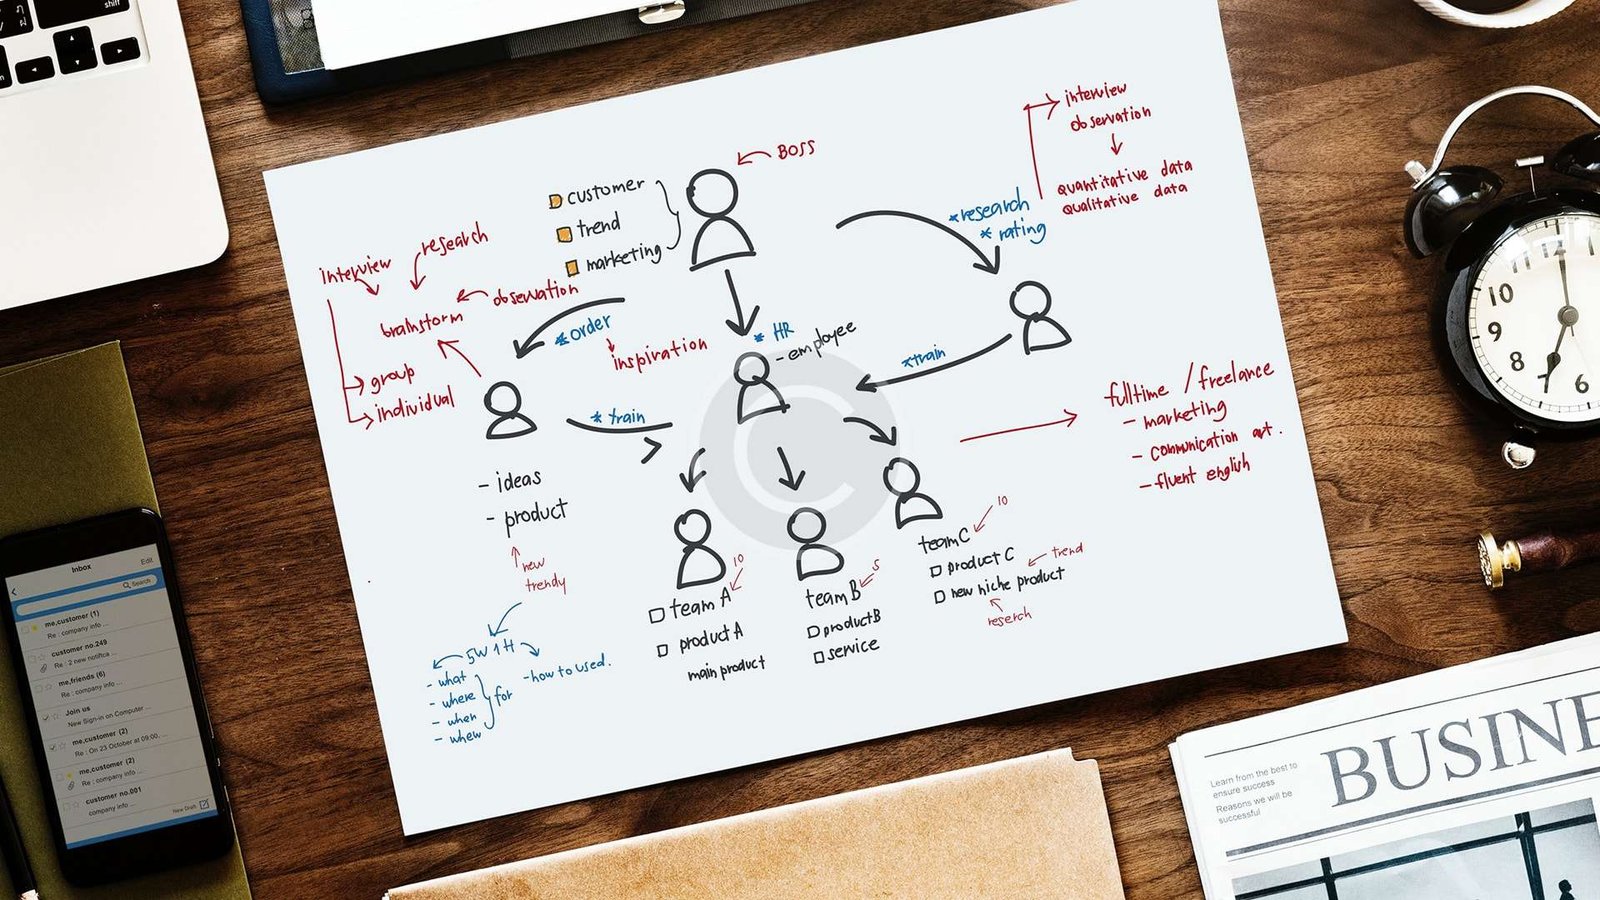 shift
BOSS
customer
trend
marketing
interview
observation
quantitative data
qualitative data
*research
* rating
interview
research
observation
brainstorm
group
individual
*order
inspiration
* HR
- employee
*train
* train
- ideas
- product
new
trendy
5W1H
- what
- where
- when
- whew
for
- how to used.
10
team A
product A
main product
5
team B
product B
service
10
team C
product C
trend
new niche product
reserch
fulltime / freelance
- marketing
- communication art.
- fluent english
10
9
8
6
Inbox
Edit
Search
me,customer (1)
Re : company info ...
customer no.249
Re : 2 new notifica ...
me,friends (6)
Re : company info ...
Join us
New Sign-in on Computer ...
me,customer (2)
Re : On 23 October at 09:00, ...
me,customer (2)
Re : company info ...
customer no.001
company info ...
New Draft
Learn from the best to
ensure success
Reasons we will be
successful
BUSINE